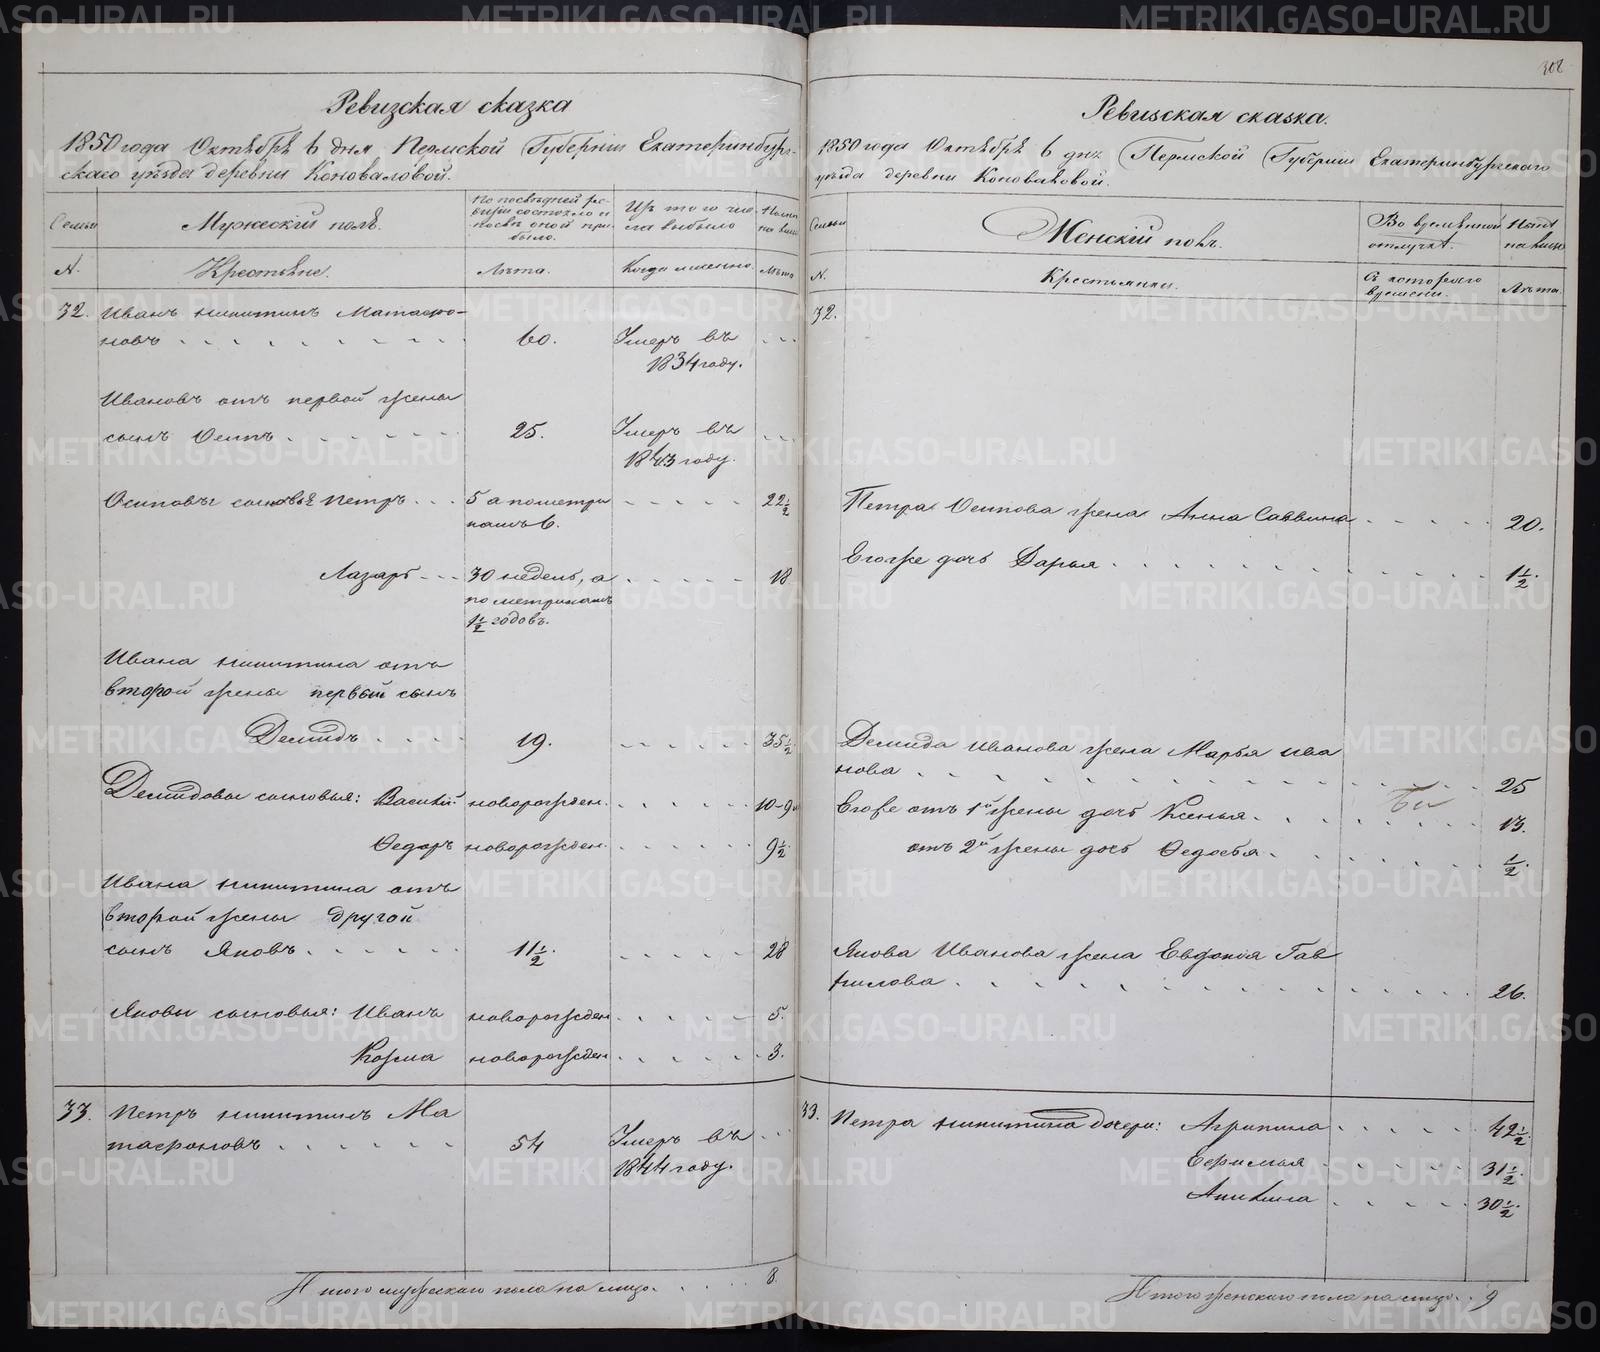 308
Ревизская сказка
1850 года Октября 6 дня Пермской Губерніи Екатеринбург-
скаго уѣзда деревни Коноваловой.
Семьи
Мужескій полъ.
По послѣдней ре-
визіи состояло и
послѣ оной при-
было.
Изъ того чис-
ла выбыло
Нынѣ
на лицо
№.
Крестьяне.
Лѣта.
Когда именно.
Лѣта
32. Иванъ Никитинъ Матафо-
новъ . . . . . . . . . 60. Умеръ въ . . .
1834 году.
Ивановъ отъ первой жены
сынъ Осипъ . . . . . . 25. Умеръ въ . . .
1843 году.
Осиповы сыновья Петръ . . . 5 а пометри . . . . . 22½
камъ 6.
Лазарь . . . 30 недель, а . . . . . 18
по метрикамъ
1½ годовъ.
Ивана Никитина отъ
второй жены первый сынъ
Демидъ . . . . 19. . . . . . . 35½
Демидовы сыновья: Василій новорожден. . . . . . 10-9м
Ѳедоръ новорожден. . . . . . 9½
Ивана Никитина отъ
второй жены другой
сынъ Яковъ . . . . . . 11½. . . . . . 28
Яковы сыновья: Иванъ новорожден . . . . . 5.
Козма новорожден . . . . . 3.
33. Петръ Никитинъ Ма
тафоновъ . . . . . . 54 Умеръ въ . . .
1844 году.
Итого мужескаго пола на лицо. . . . . . 8
Ревизская сказка.
1850 года Октября 6 дня Пермской Губерніи Екатеринбургскаго
уѣзда деревни Коноваловой.
Семьи
Женскій полъ.
Во временной
отлучкѣ.
Нынѣ
на лицо
№.
Крестьянки.
Съ котораго
времени.
Лѣта.
32.
Петра Осипова жена Анна Саввина . . . . . 20.
Егоже дочь Дарья . . . . . . . . . . . 1½.
Демида Иванова жена Марья Ива
нова . . . . . . . . . . . . . 25
Егоже отъ 1й жены дочь Ксенья . . . . . . . 13.
отъ 2й жены дочь Ѳедосья . . . . . . . ½.
Якова Иванова жена Евдокія Гав
рилова . . . . . . . . . . . . 26.
33. Петра Никитина дочери: Агрипина . . . . . 42½.
Ефимья . . . . . 31½.
Акилина . . . . . 30½.
Итого женскаго пола на лицо. . . 9
METRIKI.GASO-URAL.RU